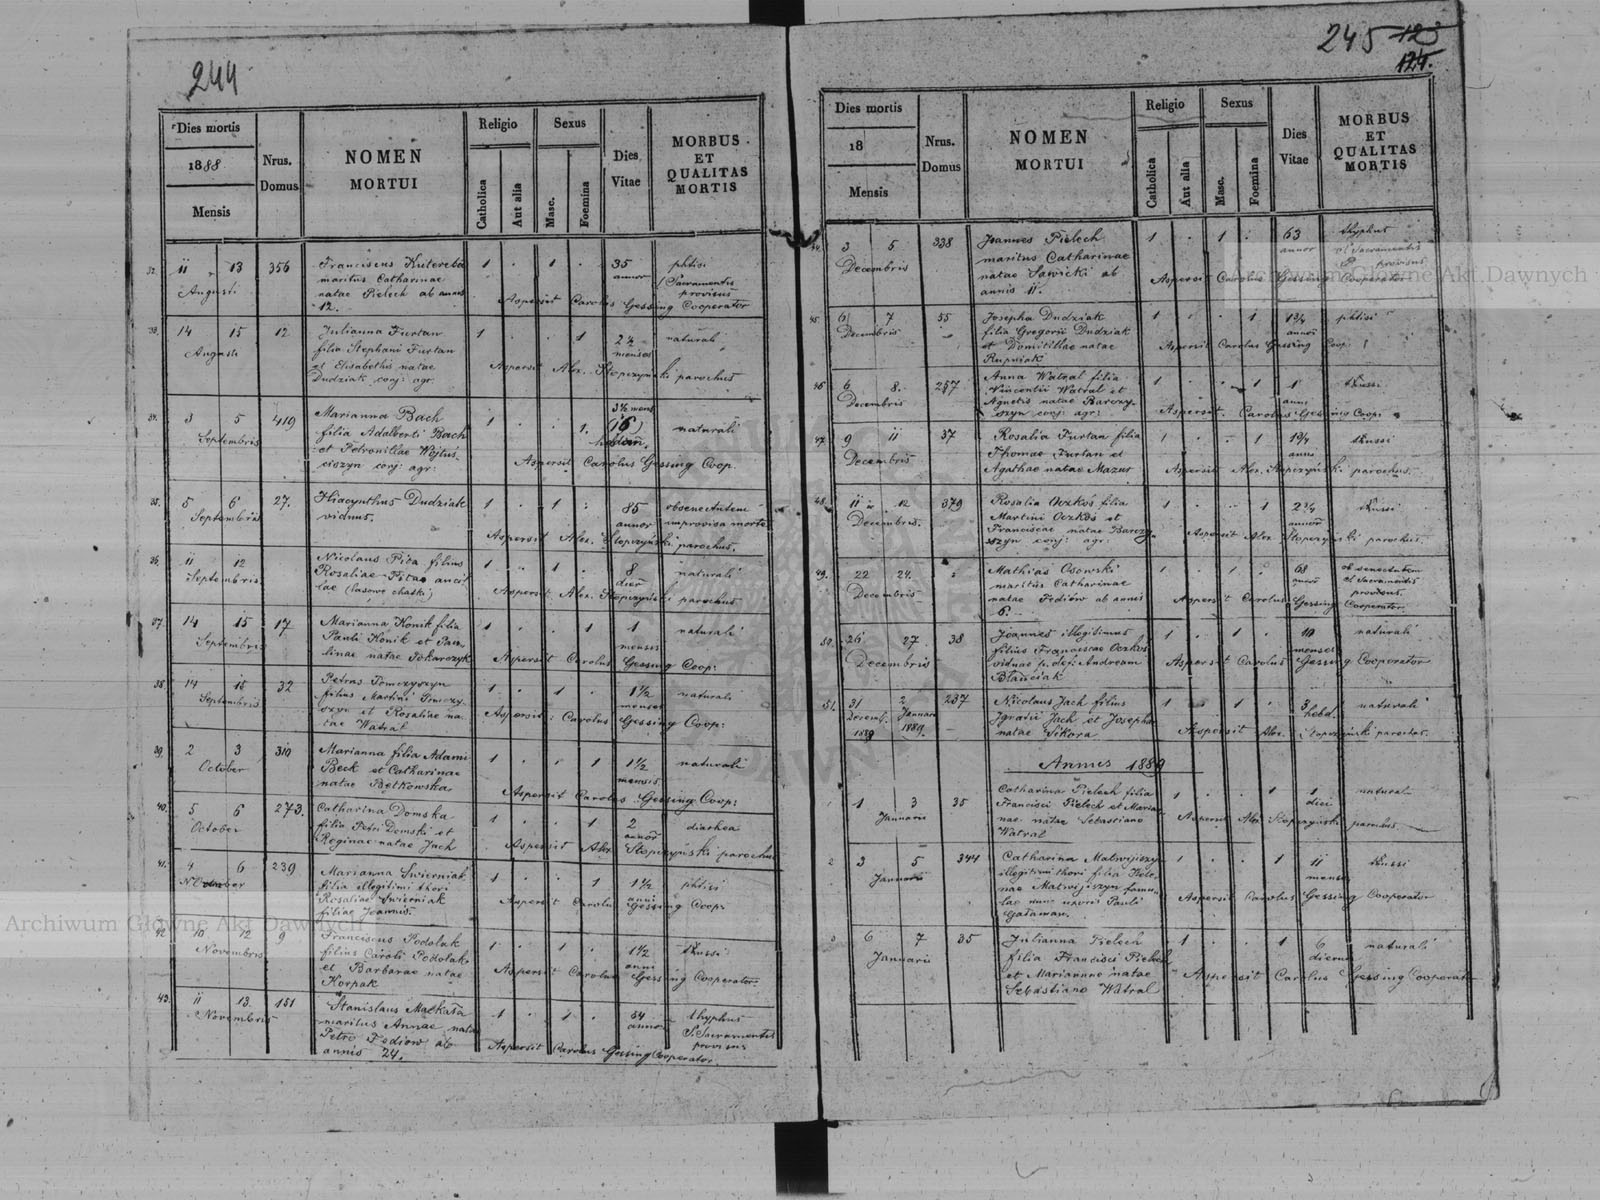 244
Dies mortis
1888
Mensis
Nrus.
Domus
NOMEN
MORTUI
Religio
Catholica
Aut alia
Sexus
Masc.
Foemina
Dies
Vitae
MORBUS
ET
QUALITAS
MORTIS
32. 11 13 356 Franciscus Kutereba 1 . 1 . 35 phtisi
Augusti maritus Catharinae annor Sacramentis
natae Pielech ab annis provisus
12. Aspersit Carolus Gessing Cooperator
33. 14 15 12 Julianna Furtan 1 . . 1 naturali
Augusti filia Stephani Furtan menses
et Elisabethis natae Aspersit Alex. Stopczyński parochus
Dudziak conj: agr:
34. 3 5 419 Marianna Bach 1 . . 1. naturali
Septembris filia Adalberti Bach
et Petronillae Wojtus
ciszyn conj: agr: Aspersit Carolus Gessing Coop.
35. 5 6 27. Hiacynthus Dudziak 1 . 1 . 85
Septembris viduus. annor improvisa morte
Aspersit Alex. Stopczyński parochus.
36. 11 12 Nicolaus Pita filius 1 . 1 . 8 naturali
Septembris Rosaliae Pitae ancil dier
lae Aspersit Alex. Stopczyński parochus
37. 14 15 17 Marianna Konik filia 1 . . 1 1 naturali
Septembris Pauli Konik et Pau- menses
linae natae Tokarczyk Aspersit Carolus Gessing Coop:
38. 14 15 32 Petrus Tomczyszyn 1 . 1 . 1 1/2 naturali
Septembris filius Martini Tomczy- menses
szyn et Rosaliae na- Aspersit: Carolus Gessing Coop:
tae Watral
39. 2 3 310 Marianna filia Adami 1 . . 1 1 1/2 naturali
October Beck et Catharinae mensis
natae Bętkowska Aspersit Carolus Gessing Coop:
40. 5 6 273. Catharina Domska 1 . . 1 2 diarhea
October filia Petri Domski et annor
Reginae natae Jach Aspersit Alex Stopczyński parochus
41. 4 6 239 Marianna Swierniak 1 . . 1 1 1/2 phtisi
filia illegitimi thori anni
Rosaliae Swierniak Aspersit Carolus Gessing Coop:
filiae Joannis.
42 10 12 9 Franciscus Podolak 1 . 1 . 1 1/2 tussi
Novembris filius Caroli Podolak anni
et Barbarae natae Aspersit Carolus Gessing Cooperator
Korpak
43. 11 13. 151 Stanislaus 1 . 1 . 54 thyphus
Novembris maritus Annae natae annor S. Sacramentis
Petro Fediow ab provisus
annis 24. Aspersit Carolus Gessing Cooperator
245 125
124.
Dies mortis
18
Mensis
Nrus.
Domus
NOMEN
MORTUI
Religio
Catholica
Aut alia
Sexus
Masc.
Foemina
Dies
Vitae
MORBUS
ET
QUALITAS
MORTIS
44. 3 5 338 Joannes Pielech 1 . 1 . 63 thyphus
Decembris maritus Catharinae annor et Sacramentis
natae Sawicki ab provisus
annis 11. Aspersit Carolus Gessing Cooperator
45. 6 7 55 Josepha Dudziak 1 . . 1 1 3/4 phtisi
Decembris filia Gregorii Dudziak annor
et Domitillae natae Aspersit Carolus Gessing Coop:
Rupniak
46 6 8. 257 Anna Watral filia 1 . . 1 1 tussi
Decembris Vincentii Watral et anni
Agnetis natae Barczy- Aspersit. Carolus Gessing Coop:
szyn conj: agr:
47. 9 11 37 Rosalia Furtan filia 1 . . 1 1 3/4 tussi
Decembris Thomae Furtan et annis
Agathae natae Mazur Aspersit Alex. Stopczyński parochus.
48. 11 12 379 Rosalia Oczkoś filia 1 . . 1 2 3/4 tussi
Decembris. Martini Oczkoś et annor
Franciscae natae Barczy- Aspersit Alex Stopczyński parochus.
szyn conj: agr:
49. 22 24. Mathias Osowski 1 . 1 . 68 ob senectutem
Decembris maritus Catharinae annor et Sacramentis
natae Fediów ab annis provisus
6. Aspersit Carolus Gessing Cooperator
50. 26 27 38 Joannes illegitimus 1 . 1 . 10 naturali
Decembris filius Franciscae Oczkoś menses
viduae p. def: Andream Aspersit Carolus Gessing Cooperator
51. 31 2 237 Nicolaus Jach filius 1 . 1 . 3 naturali
Decemb. Januari Ignatii Jach et Josepha hebd.
1889 1889. natae Sikora Aspersit Alex. Stopczyński parochus.
Annus 1889
1 3 35 Catharina Pielech filia 1 . . 1 1 naturali
Januarii Francisci Pielech et Marian- diei
nae natae Sebastiano Aspersit Alex Stopczyński parochus
Watral
2 3 5 344 Catharina Matwijiszyn 1 . . 1 11 tussi
Januarii illegitimi thori filia Hele- menses
nae Matwijiszyn famu- Aspersit Carolus Gessing Cooperator
lae nunc uxoris Pauli
3 6 7 35 Julianna Pielech 1 . . 1 6 naturali
Januarii filia Francisci Pielech dierum
et Marianne natae Aspersit Carolus Gessing Cooperator
Sebastiano Watral
Archiwum Główne Akt Dawnych
Archiwum Główne Akt Dawnych